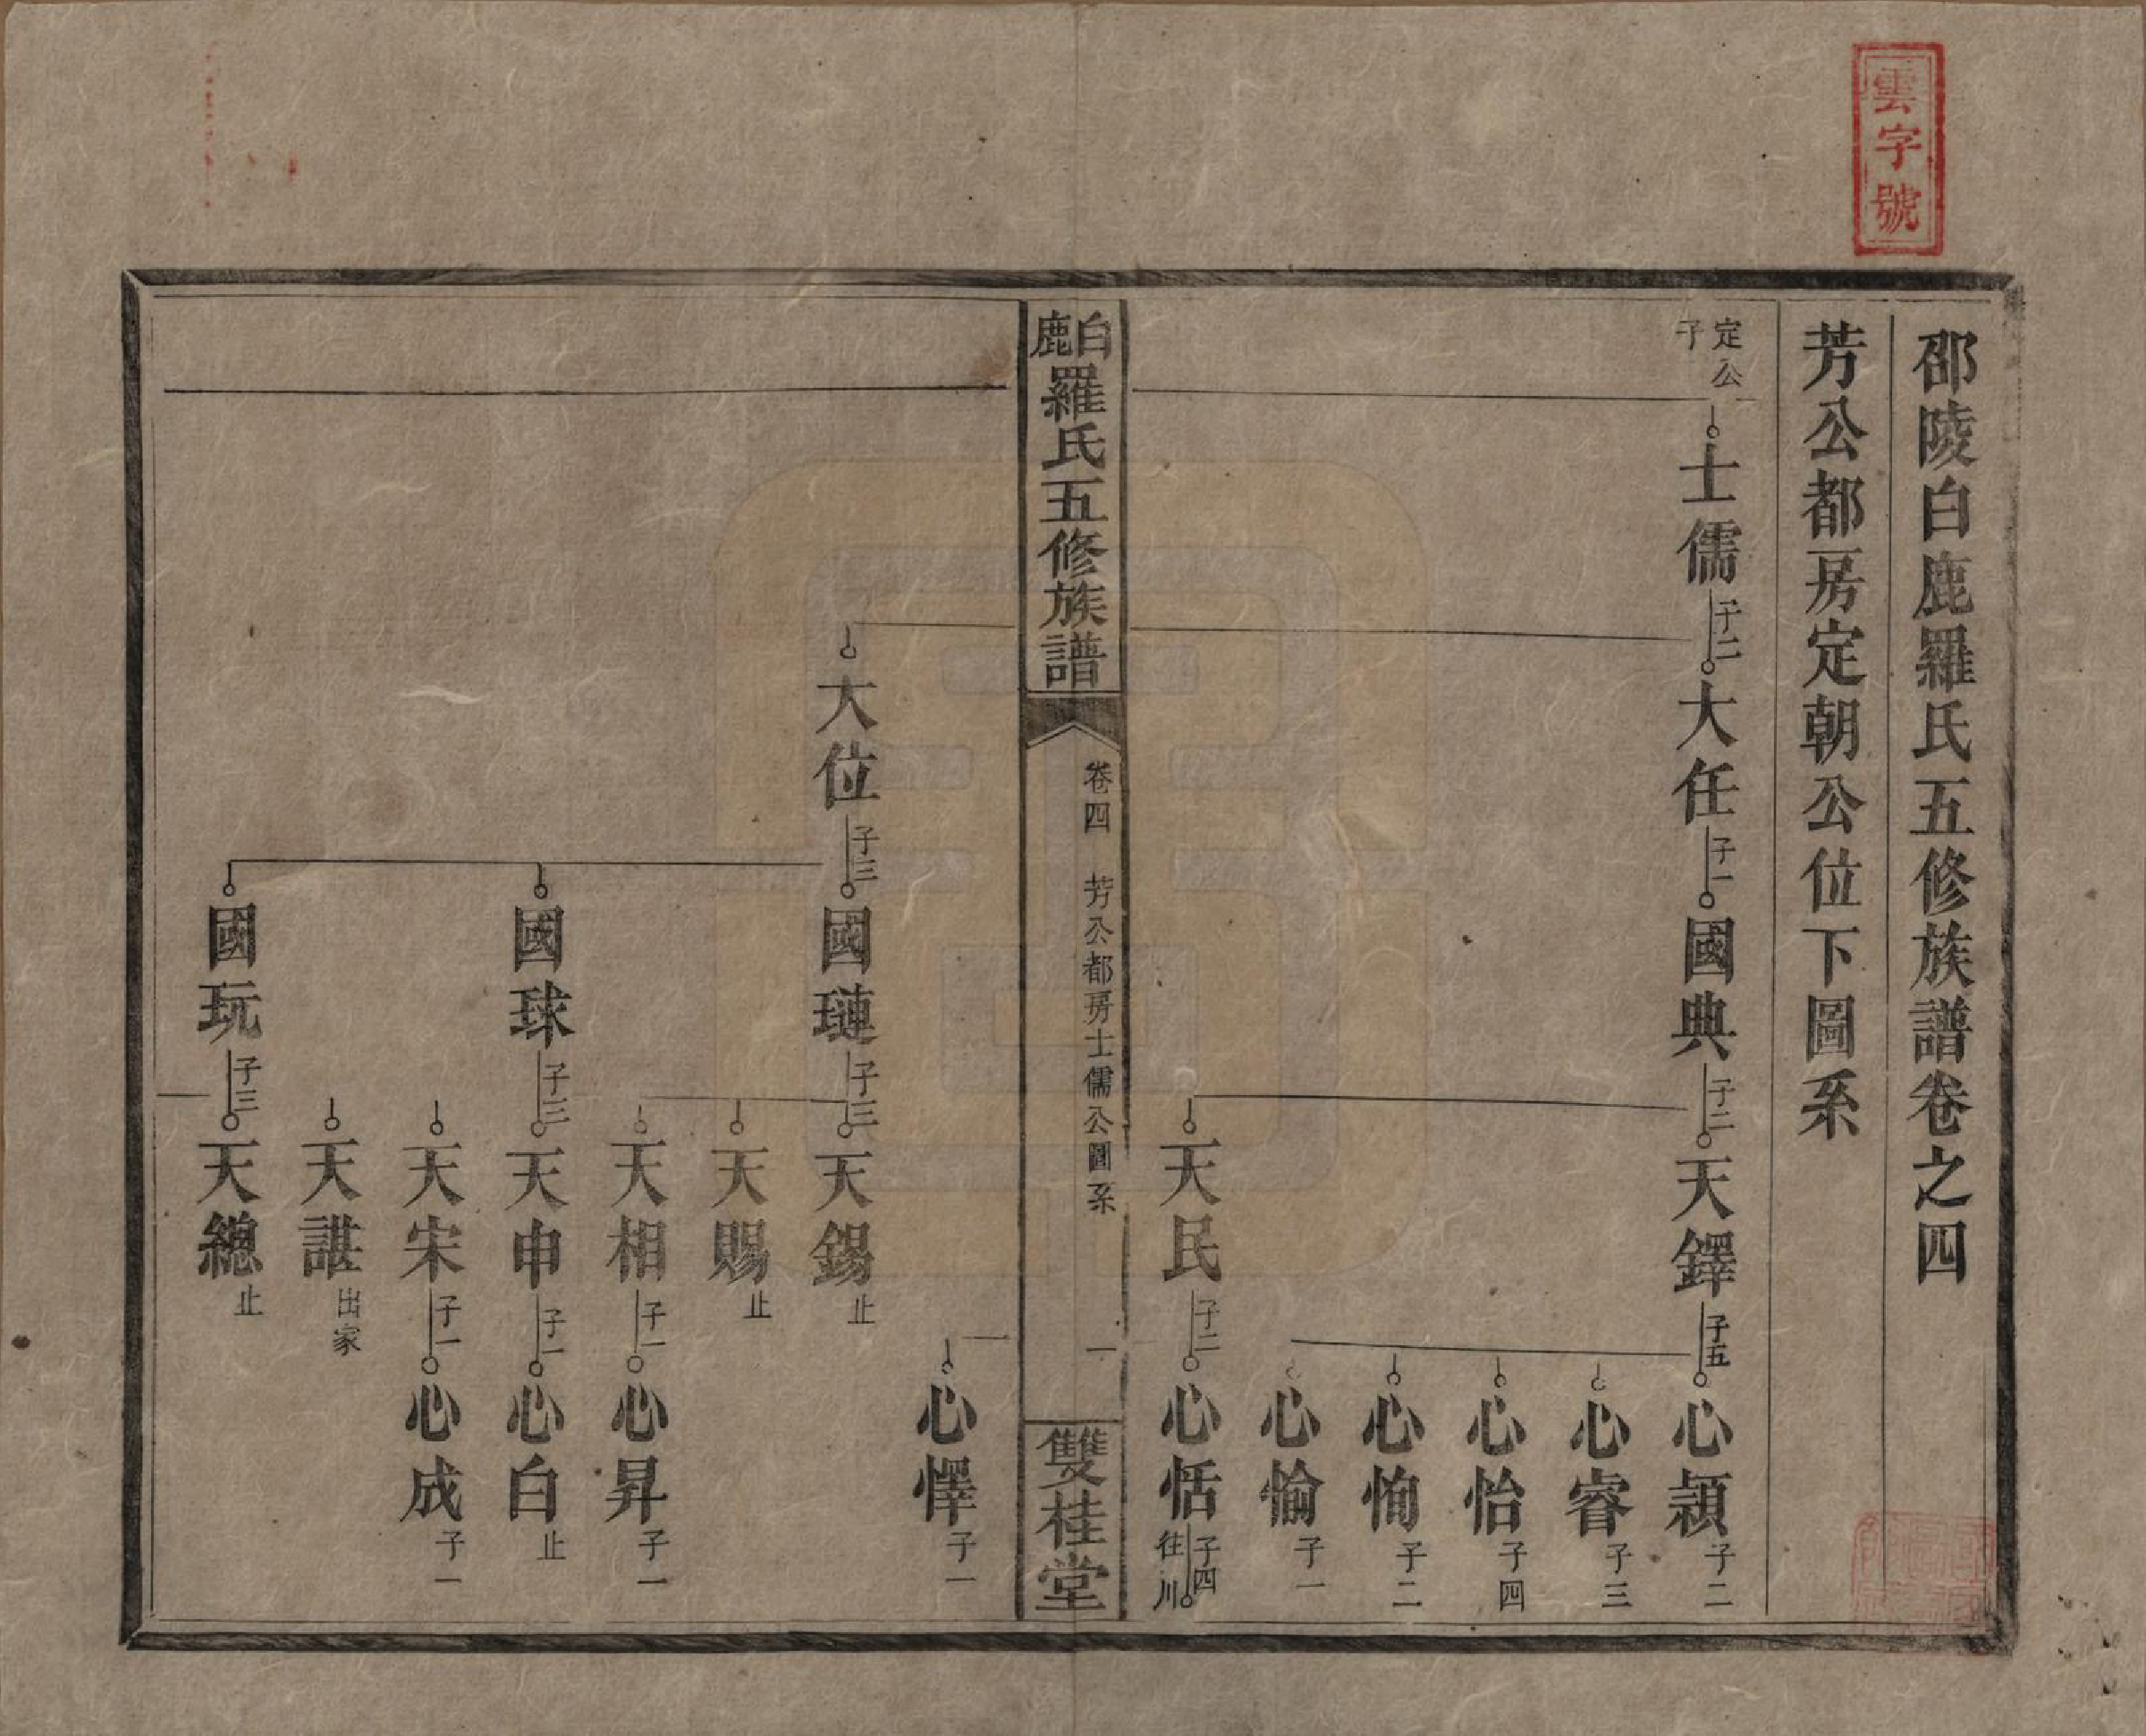 雲字號
邵陵白鹿羅氏五修族譜卷之四
芳公都房定朝公位下圖系
定公子
士儒 子二
大任 子一
國典 子二
天鐸 子五
心頴 子二
心睿 子三
心怡 子四
心恂 子二
心愉 子一
天民 子二
心恬 子四 往川
白鹿羅氏五修族譜
卷四 芳公都房士儒公圖系
一
雙桂堂
心懌 子一
大位 子三
國璉 子三
天錫 止
天賜 止
天相 子一
心昇 子一
國球 子三
天申 子一
心白 止
天宋 子一
心成 子一
天諶 出家
國玩 子三
天總 止